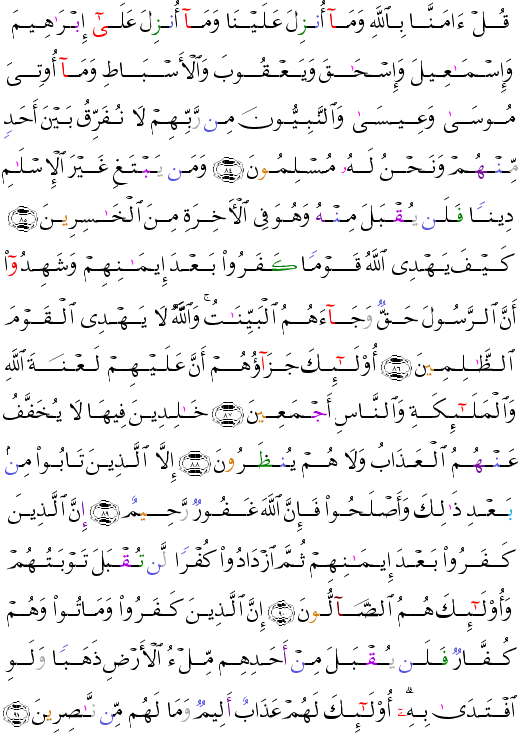 قُلْ ءَامَنَّا بِٱللَّهِ وَمَآ أُنزِلَ عَلَيْنَا وَمَآ أُنزِلَ عَلَىٰٓ إِبْرَٰهِيمَ
وَإِسْمَـٰعِيلَ وَإِسْحَـٰقَ وَيَعْقُوبَ وَٱلْأَسْبَاطِ وَمَآ أُوتِىَ
مُوسَىٰ وَعِيسَىٰ وَٱلنَّبِيُّونَ مِن رَّبِّهِمْ لَا نُفَرِّقُ بَيْنَ أَحَدٍ
مِّنْهُمْ وَنَحْنُ لَهُۥ مُسْلِمُونَ ﴿٨٤﴾ وَمَن يَبْتَغِ غَيْرَ ٱلْإِسْلَـٰمِ
دِينًا فَلَن يُقْبَلَ مِنْهُ وَهُوَ فِى ٱلْأَخِرَةِ مِنَ ٱلْخَـٰسِرِينَ ﴿٨٥﴾
كَيْفَ يَهْدِى ٱللَّهُ قَوْمًا كَفَرُوا۟ بَعْدَ إِيمَـٰنِهِمْ وَشَهِدُوٓا۟
أَنَّ ٱلرَّسُولَ حَقٌّ وَجَآءَهُمُ ٱلْبَيِّنَـٰتُ ۚ وَٱللَّهُ لَا يَهْدِى ٱلْقَوْمَ
ٱلظَّـٰلِمِينَ ﴿٨٦﴾ أُو۟لَـٰٓئِكَ جَزَآؤُهُمْ أَنَّ عَلَيْهِمْ لَعْنَةَ ٱللَّهِ
وَٱلْمَلَـٰٓئِكَةِ وَٱلنَّاسِ أَجْمَعِينَ ﴿٨٧﴾ خَـٰلِدِينَ فِيهَا لَا يُخَفَّفُ
عَنْهُمُ ٱلْعَذَابُ وَلَا هُمْ يُنظَرُونَ ﴿٨٨﴾ إِلَّا ٱلَّذِينَ تَابُوا۟ مِنۢ
بَعْدِ ذَٰلِكَ وَأَصْلَحُوا۟ فَإِنَّ ٱللَّهَ غَفُورٌ رَّحِيمٌ ﴿٨٩﴾ إِنَّ ٱلَّذِينَ
كَفَرُوا۟ بَعْدَ إِيمَـٰنِهِمْ ثُمَّ ٱزْدَادُوا۟ كُفْرًا لَّن تُقْبَلَ تَوْبَتُهُمْ
وَأُو۟لَـٰٓئِكَ هُمُ ٱلضَّآلُّونَ ﴿٩٠﴾ إِنَّ ٱلَّذِينَ كَفَرُوا۟ وَمَاتُوا۟ وَهُمْ
كُفَّارٌ فَلَن يُقْبَلَ مِنْ أَحَدِهِم مِّلْءُ ٱلْأَرْضِ ذَهَبًا وَلَوِ
ٱفْتَدَىٰ بِهِۦٓ ۗ أُو۟لَـٰٓئِكَ لَهُمْ عَذَابٌ أَلِيمٌ وَمَا لَهُم مِّن نَّـٰصِرِينَ ﴿٩١﴾